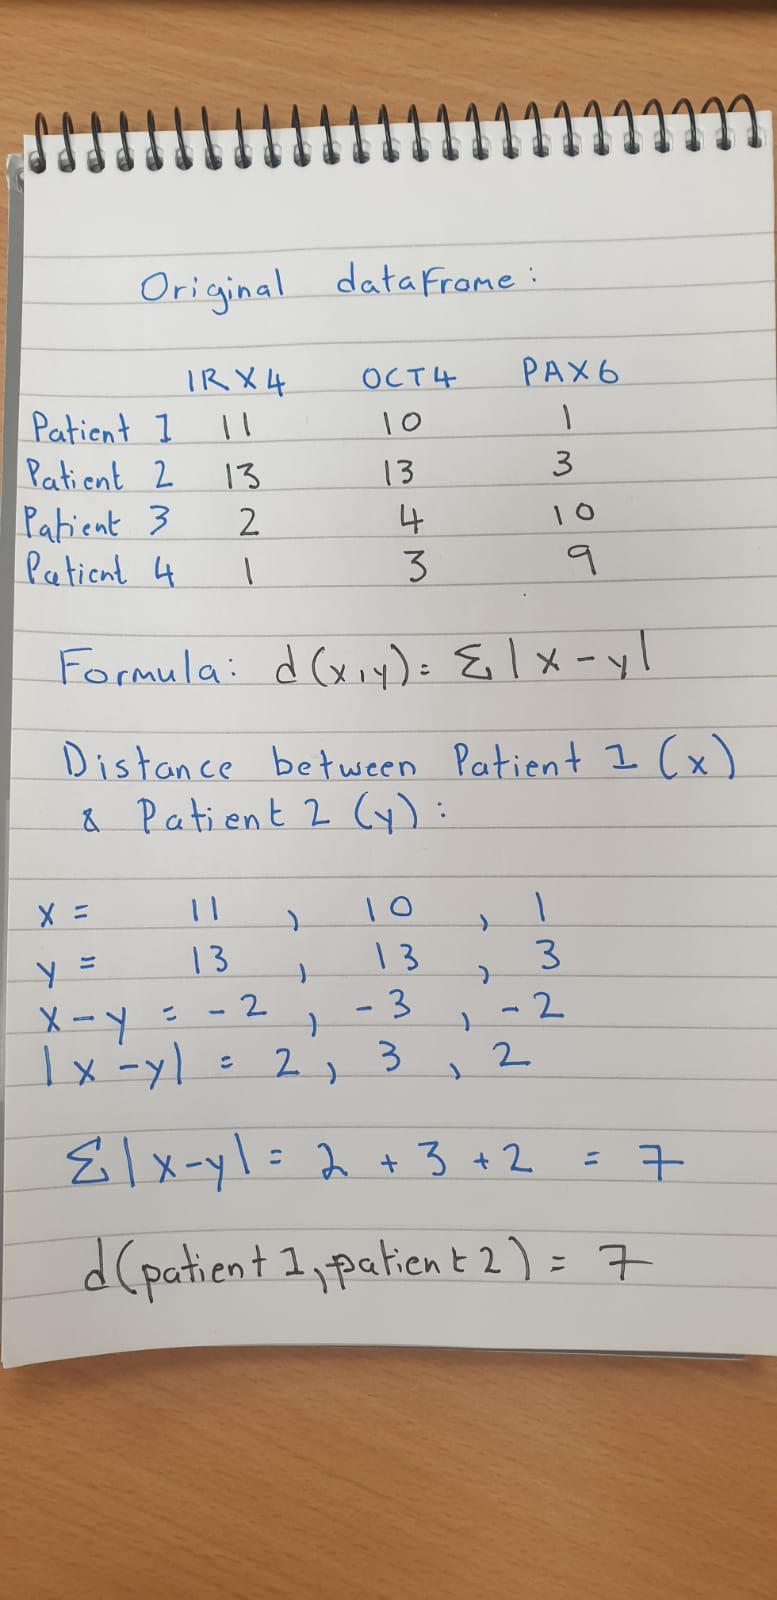 Original dataframe:
IRX4 OCT4 PAX6
Patient 1 11 10 1
Patient 2 13 13 3
Patient 3 2 4 10
Patient 4 1 3 9
Formula: d(x,y)= Σ|x-y|
Distance between Patient 1 (x)
& Patient 2 (y):
x = 11 , 10 , 1
y = 13 , 13 , 3
x-y = -2 , -3 , -2
|x-y| = 2 , 3 , 2
Σ|x-y| = 2 + 3 + 2 = 7
d(patient 1, patient 2) = 7